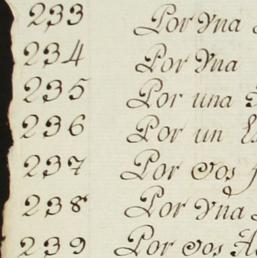 233 Por Vna
234 Por Vna
235 Por una
236 Por un
237 Por dos
238 Por Vna
239 Por dos